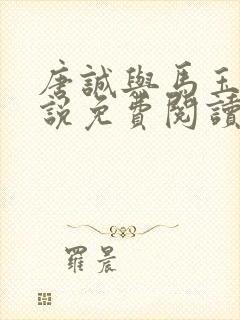 唐誠與馬玉
說免費閱讀
羅晨